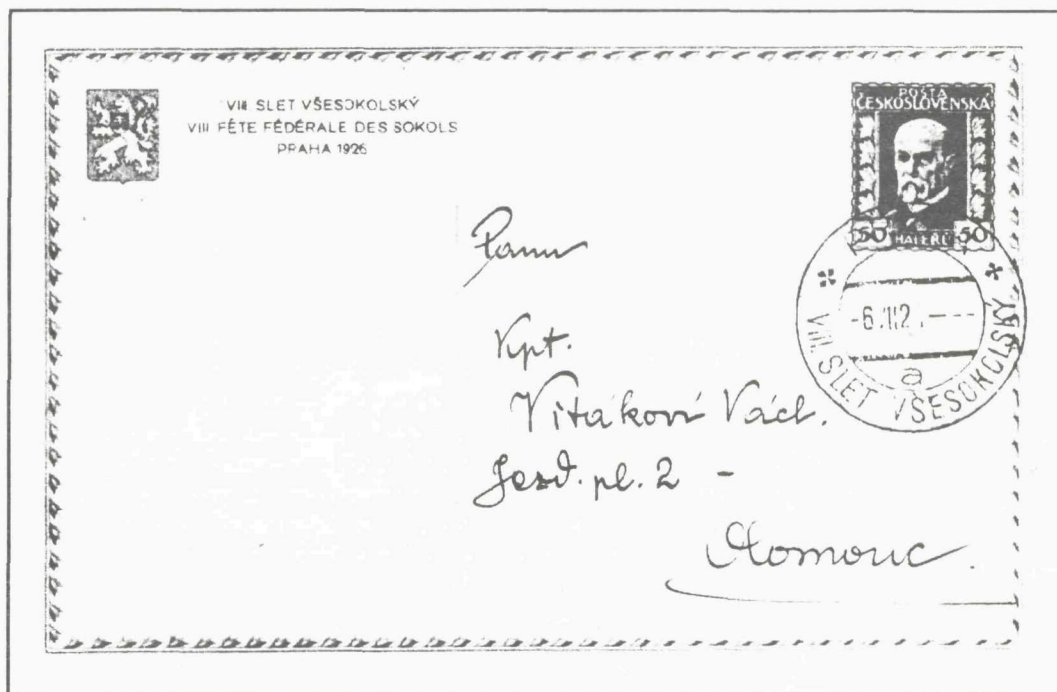 VIII SLET VŠESOKOLSKÝ
VIII FÊTE FÉDÉRALE DES SOKOLS
PRAHA 1926
POŠTA
ČESKOSLOVENSKÁ
50 HALÉŘŮ 50
VIII. SLET VŠESOKOLSKÝ
a
Panu
Kpt.
Vitákovi Václ.
Jezd. pl. 2 -
Olomouc.